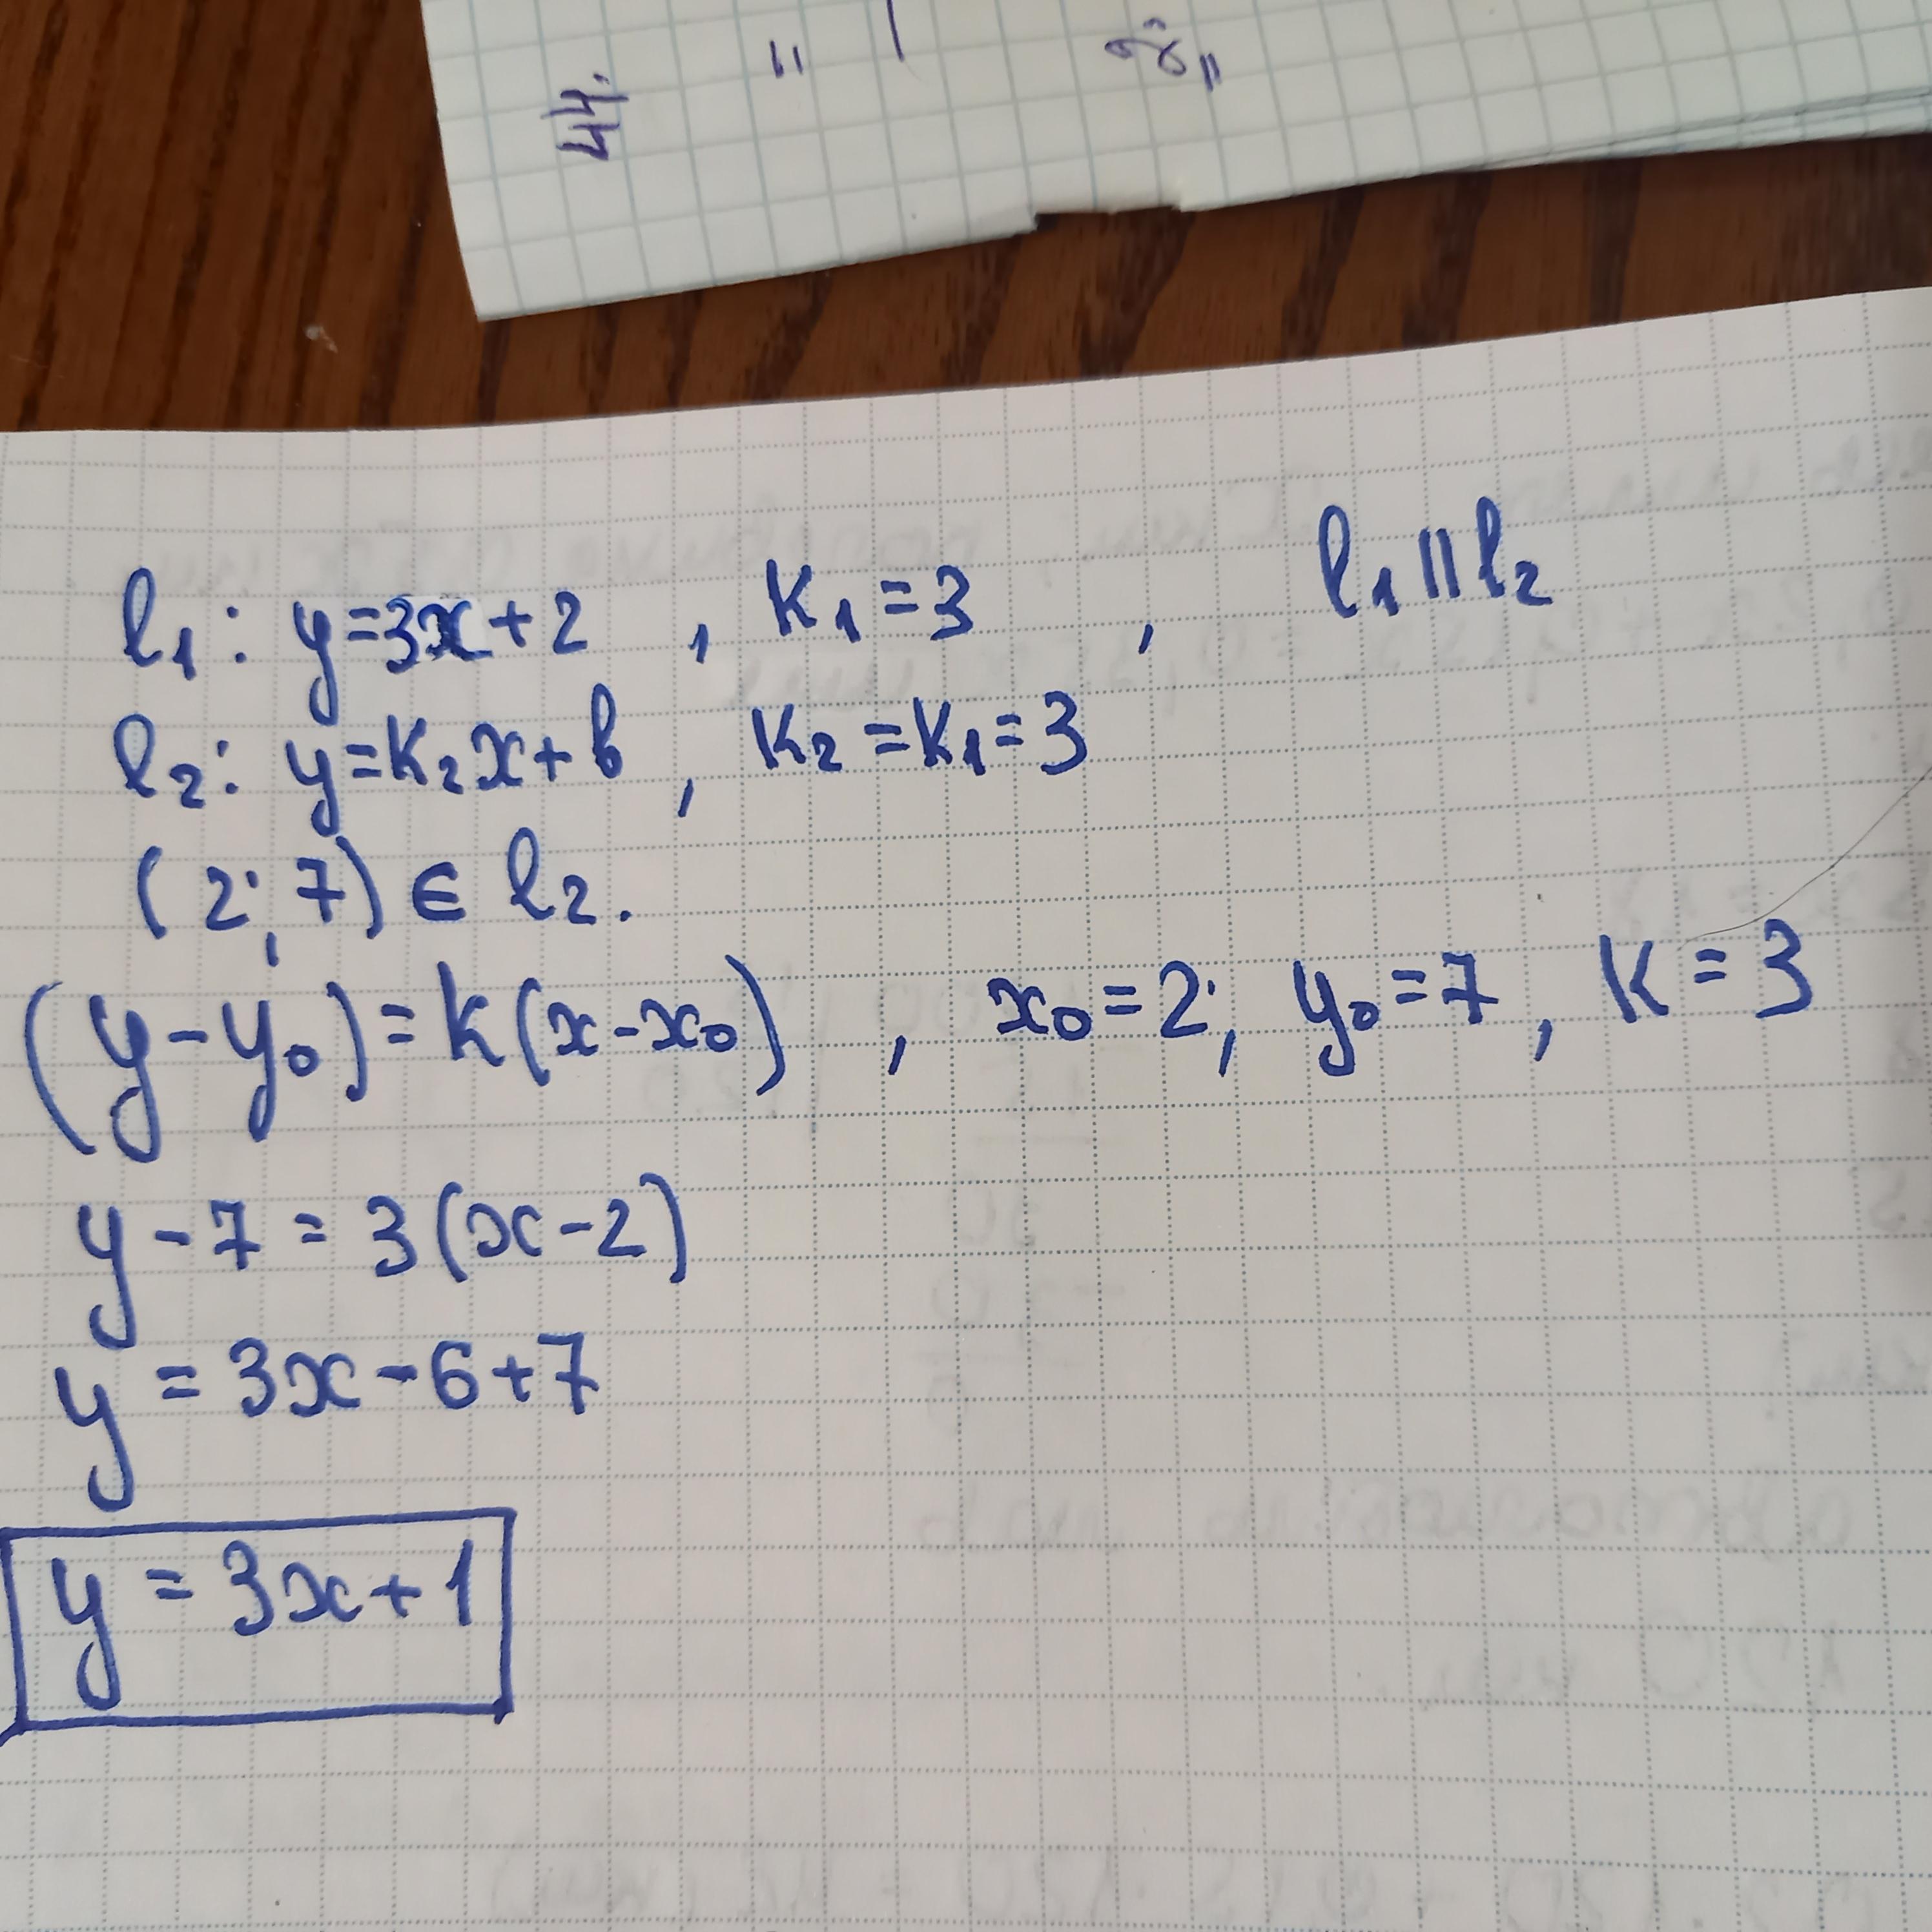 44.
l₁: y=3x+2 , K₁=3 , l₁ || l₂
l₂: y=K₂x+b , K₂=K₁=3
(2; 7) ∈ l₂.
(y-y₀)=k(x-x₀) , x₀=2; y₀=7, K=3
y-7=3(x-2)
y=3x-6+7
y=3x+1